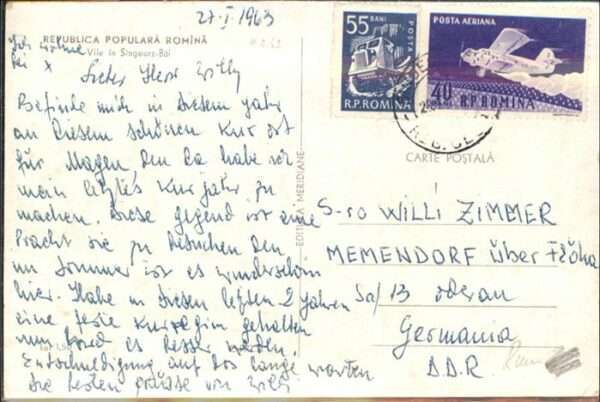 27-I-1963
REPUBLICA POPULARĂ ROMÎNĂ
Vile în Sîngeorz-Băi
Lieber Herr Willy
Befinde mich in diesem Jahr
an diesem schönen Kurort
für Magen, den da habe ich
mein letztes Kurjahr zu
machen. Diese gegend ist eine
Pracht sie zu besuchen den
im Sommer ist es wunderschön
hier. Habe in diesen letzten 2 Jahren
eine feste Kurregim gehalten
nun ford es besser werden.
Entschuldigung auf das lange warten
Die besten grüsse von Willi
EDITURA MERIDIANE
55 BANI
POSTA
R.P.ROMINA
POSTA AERIANA
40
R.P.ROMINA
CARTE POȘTALĂ
S-ro WILLI ZIMMER
MEMENDORF über Flöha
Sa/13 oderan
Germania
D.D.R